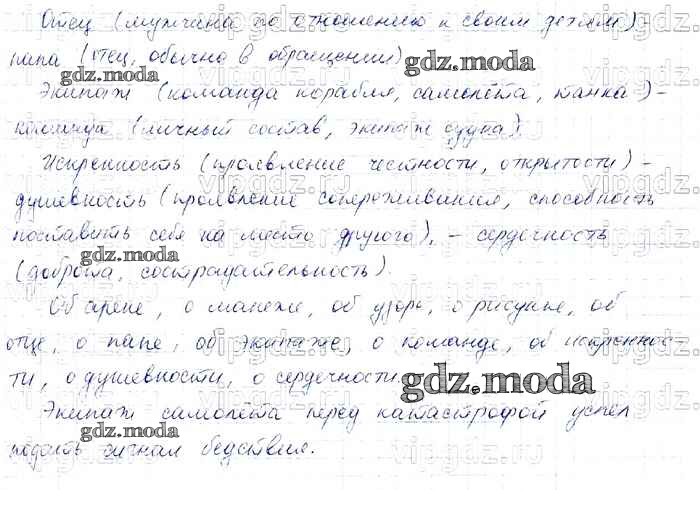 Отец (мужчина по отношению к своим детям) –
папа (отец, обычно в обращении)
gdz.moda
Экипаж (команда корабля, самолёта, танка) –
команда (личный состав, экипаж судна).
gdz.moda
Искренность (проявление честности, открытости) –
душевность (проявление сопереживания, способность
поставить себя на место другого), – сердечность
gdz.moda
(доброта, сострадательность).
Об арене, о манеже, об узоре, о рисунке, об
отце, о папе, об экипаже, о команде, об искреннос-
ти, о душевности, о сердечности.
gdz.moda
Экипаж самолёта перед катастрофой успел
gdz.moda
подать сигнал бедствия.
vipgdz.ru